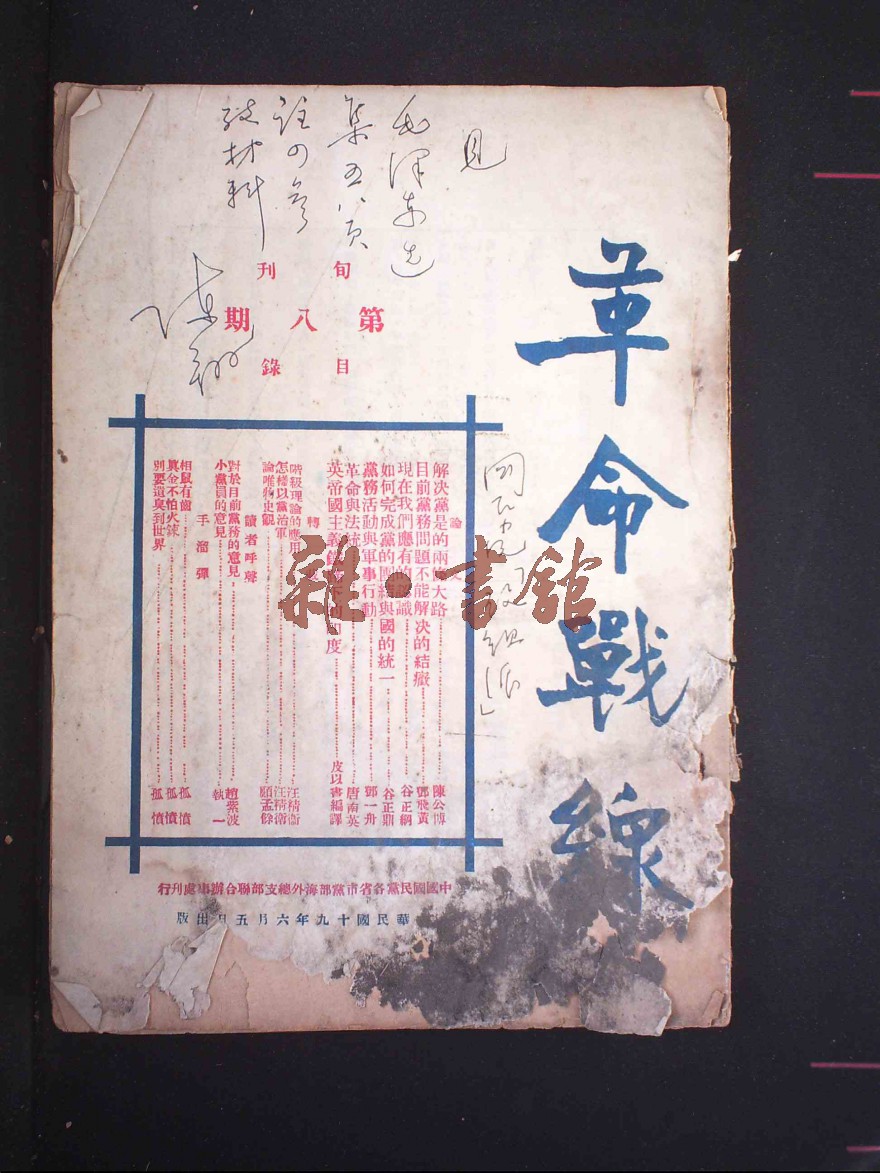 革命戰線
旬刊
第八期
目錄
見
毛澤东选
集五八页
註四參
攷材料
國民党「改组派」
論文
解决黨是的兩條大路……陳公博
目前黨務問題不能解决的結癥……鄧飛黃
現在我們應有的認識……谷正綱
如何完成黨的團結與國的統一……谷正鼎
黨務活動與軍事行動……鄧一舟
革命與法統……唐南英
英帝國主義……下的印度……皮以書編譯
轉載
階級理論的應用……汪精衛
怎樣以黨治軍……汪精衛
論唯物史觀……顧孟餘
讀者呼聲
對於目前黨務的意見……趙紫波
小黨員的意見……執一
手溜彈
相鼠有齒……孤憤
真金不怕火鍊……孤憤
別要遺臭到世界……孤憤
中國國民黨各省市黨部海外總支部聯合辦事處刊行
華民國十九年六月五日出版
雜·書館